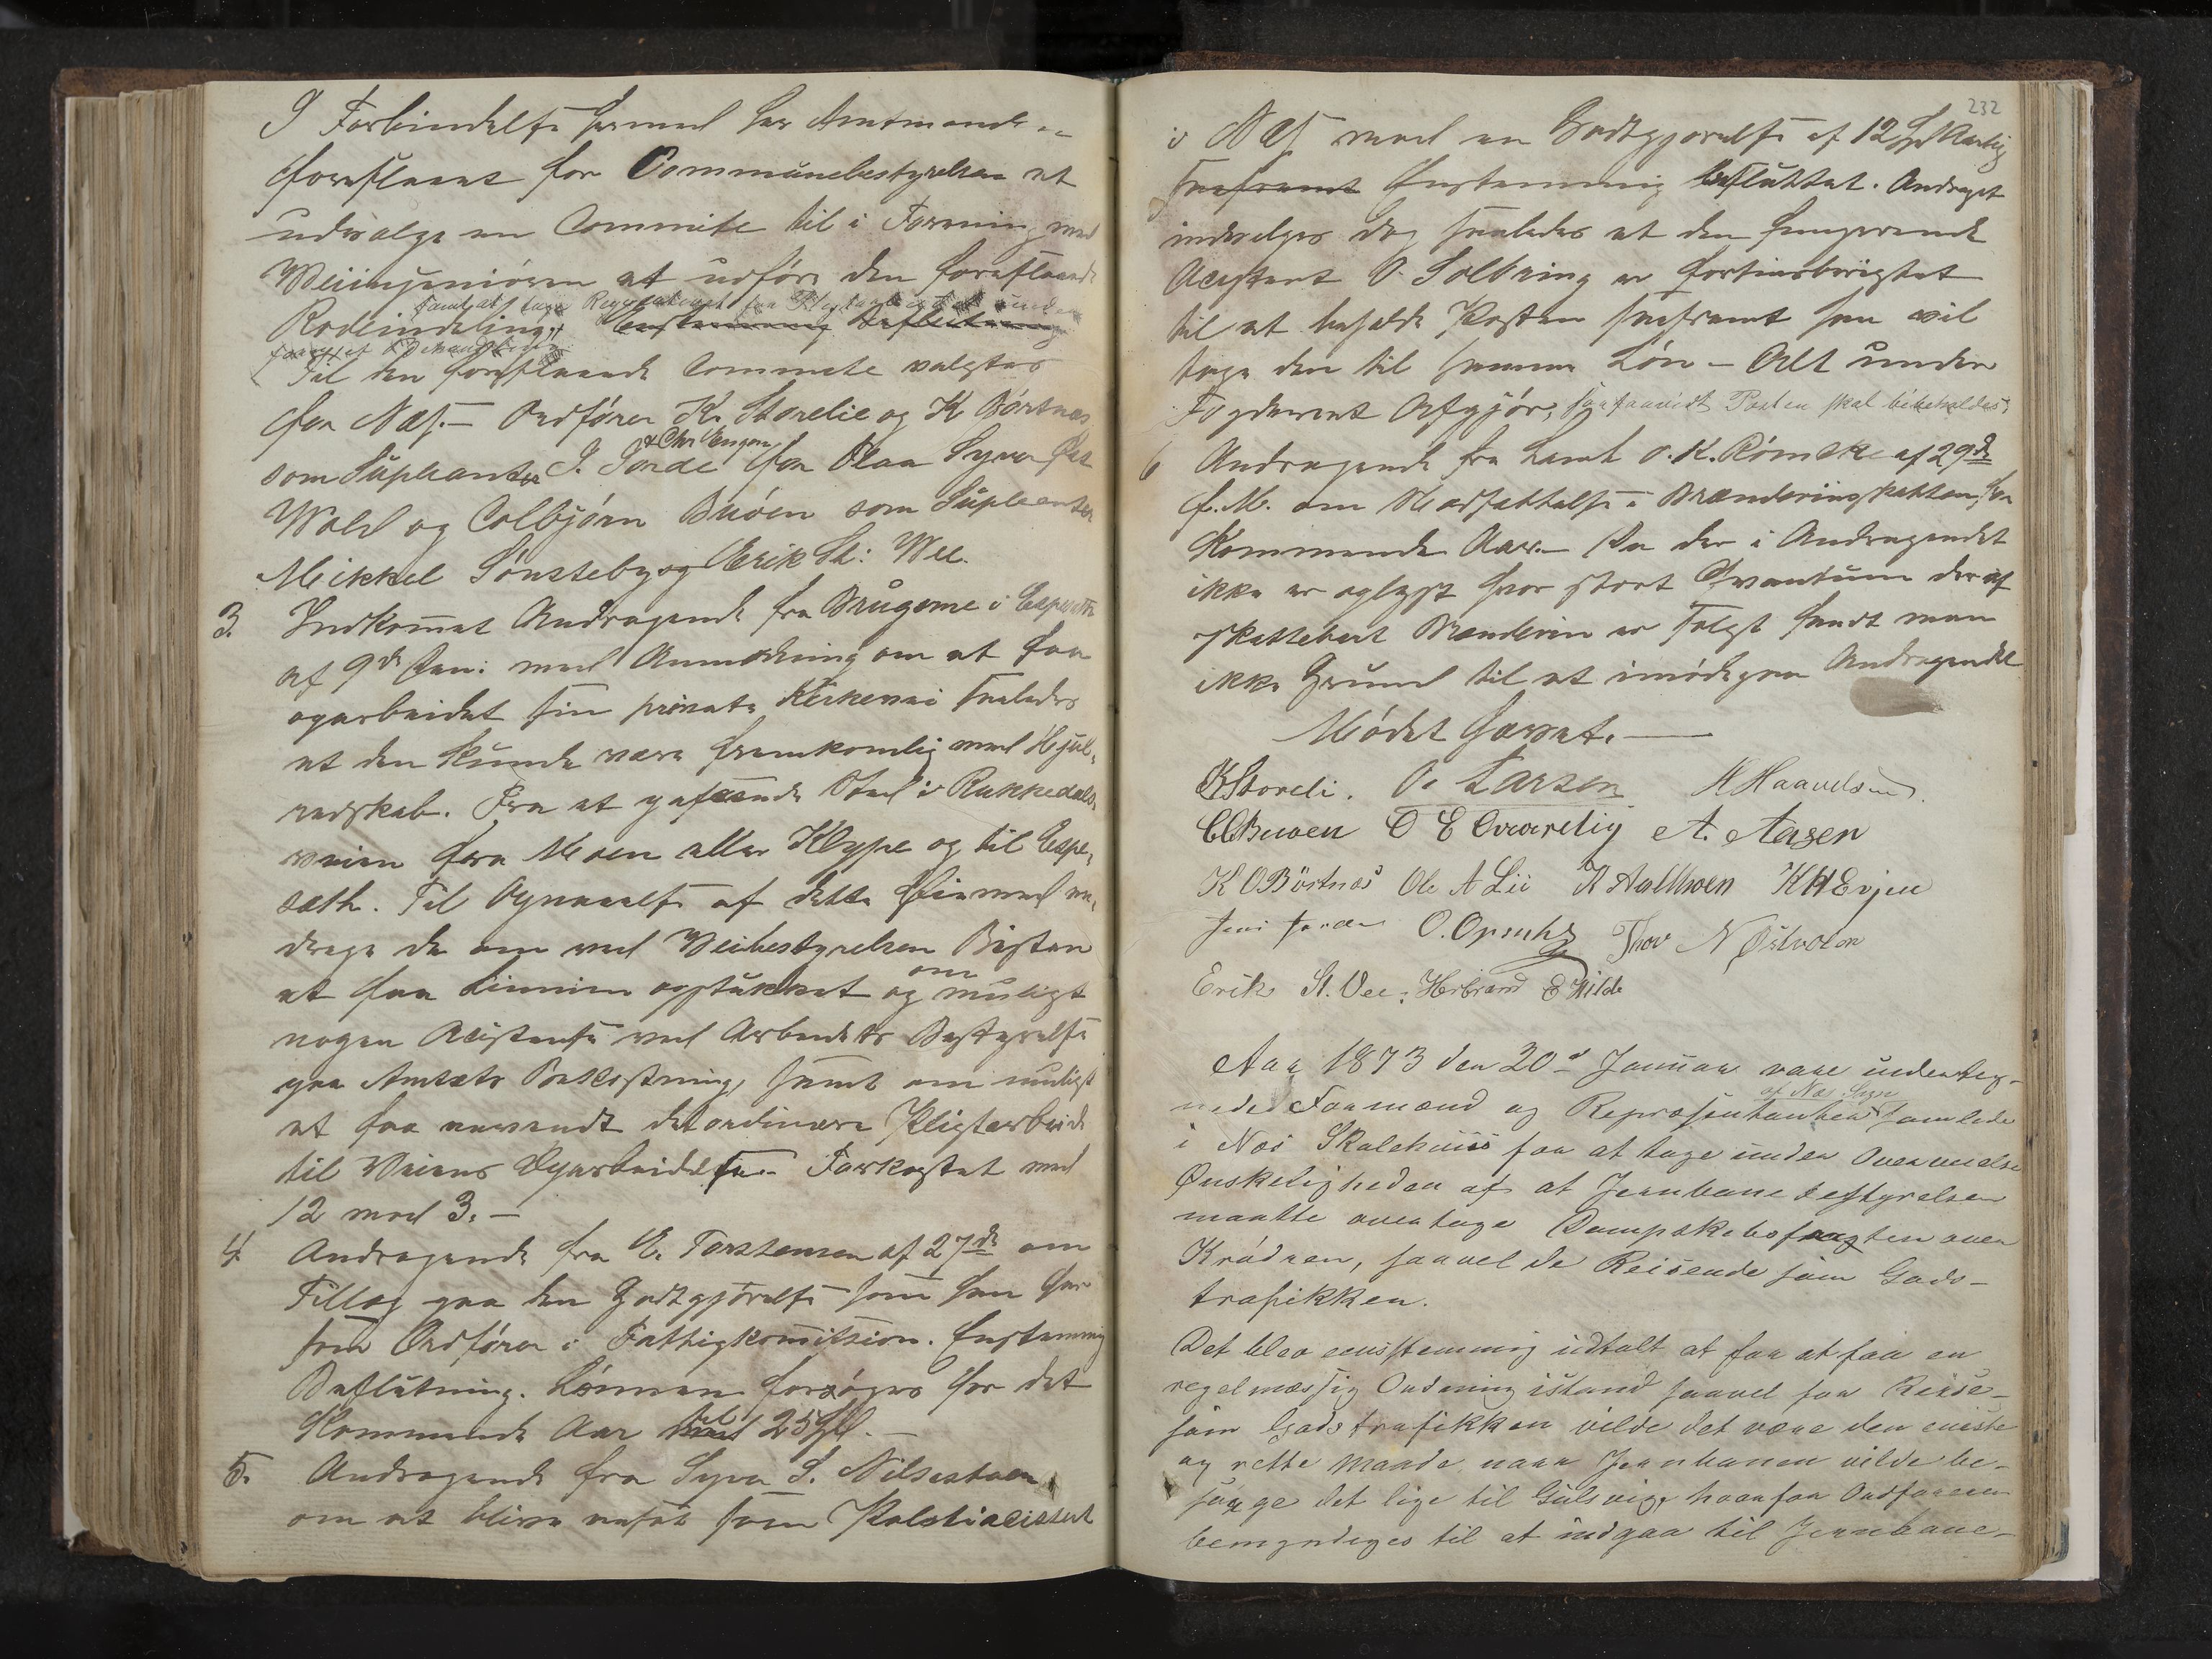 I Forbindelse hermed har Amtmanden
foreslaaet for Communebestyrelsen at
udvælge en Commite til i Forening med
Veiingeniören at udföre den foreslaaede
samt at tage Regulativet for under
Rodeinddeling. Enstemmig Beslutning
fornyet Behandling.
Til den foreslaaede Commete valgtes
for Næs. – Ordförer K. Storelie og K Börtnes
& Chr Evgen
som Supleanter J. Jorde for Flaa Syver
Wold og Colbjörn Bruöen som Supleanter
Mikkel Sönsteby og Erik St: Wee.
3. Indkommet Andragende fra Brugerne i Espeseth
af 9de Jan: med Anmodning om at faa
oparbeidet sin private Kirkevei saaledes
at den kunde være fremkomlig med Hjul-
redskab. Fra et passende Sted i Rukkedals-
veien fra Moen eller Klype og til Espe-
sæth. Til Opnaaelse af dette Öiemed an-
drage de om ved Veibestyrelsen Bistan
at faa Linnien opstukket og om muligt
nogen Acistense ved Arbeidets Bestyrelse
paa Amtets Bekostning, samt om muligt
at faa anvendt det ordinære Pligtarbeide
til Veiens Oparbeidelse. Forkastet med
12 mod 3. –
4 Andragende fra E. Torstensen af 27de om
Tillæg paa den Godtgjörelse som han har
som Ordförer i Fattigkomitsion. Enstemmig
Beslutning. Lönnen forsöges for det
Kommende Aar med til 25 Spd. –
5. Andragende fra Syver S. Nilsestuen
om at blive ansat som Politiacistent
232
i Næs mod en Godtgjörelse af 12 Spd Aarlig
saafremt Enstemmig besluttet. Andraget
indvilges dog saaledes at den fungerende
Acistent O. Solbring er fortinsberigtet
til at beholde Posten saafremt han vil
tage den til samme Lön – Alt under
Fogderiets Afgjör, saafremt Posten skal bibeholdes.
6 Andragende fra Lars O. K. Römcke af 29de
f. M. om Nedsættelse i Brænderiskatten for
Kommende Aar. – Da der i Andragendet
ikke er oplyst hvor stort Qvantum der af
skattebart Brændevin er solgt fandt man
ikke Grund til at imödegaa Andragendet
Mödet hævet. –
KStoreli. O. Larsen H Haavelsen.
CCBruoen O E Qværelig A. Aasen
K O Börtnæs Ole A Lie A Aalmoen KHEvjen
Jens Jorde O. Opsahl Thov N Östvolen
Erik St. Vee: Herbrand E Hilde
Aar 1873 den 20de Januar vare underteg-
af Næs Sogn
nede Formænd og Repræsentanter samlede
i Næs Skolehuus for at tage under Overveielse
Ønskeligheden af at Jernbane bestyrelsen
maatte overtage Dampskibsfragten over
Krödren, saavel de Reisende som Gods-
trafikken.
Det blev eenstemmig udtalt at for at faa en
regelmæssig Ordning istand saavel for Reise-
som Godstrafikken vilde det være den eneste
og rette Maade naar Jernbanen vilde be-
sörge det lige til Gulsvig, hvorfor Ordföreren
bemyndiges til at indgaa til Jernbane-